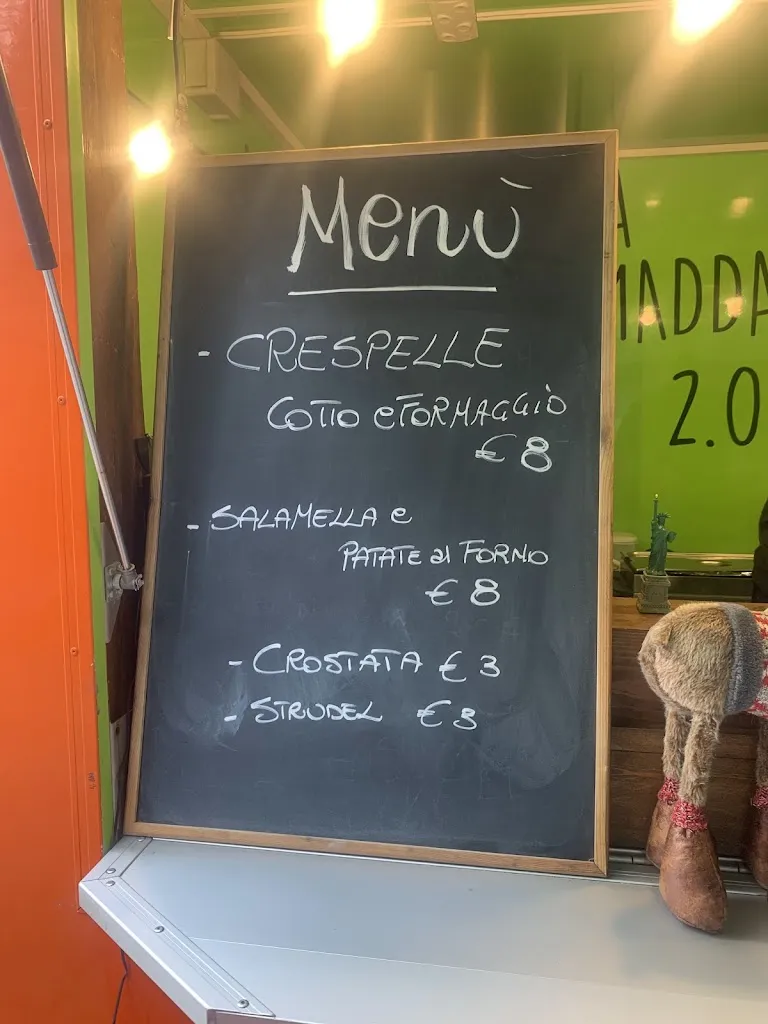 Menù
- CRESPELLE
COTTO e FORMAGGIO
€ 8
- SALAMELLA e
PATATE al FORNO
€ 8
- CROSTATA € 3
- STRUDEL € 3
A
MADDA
2.0